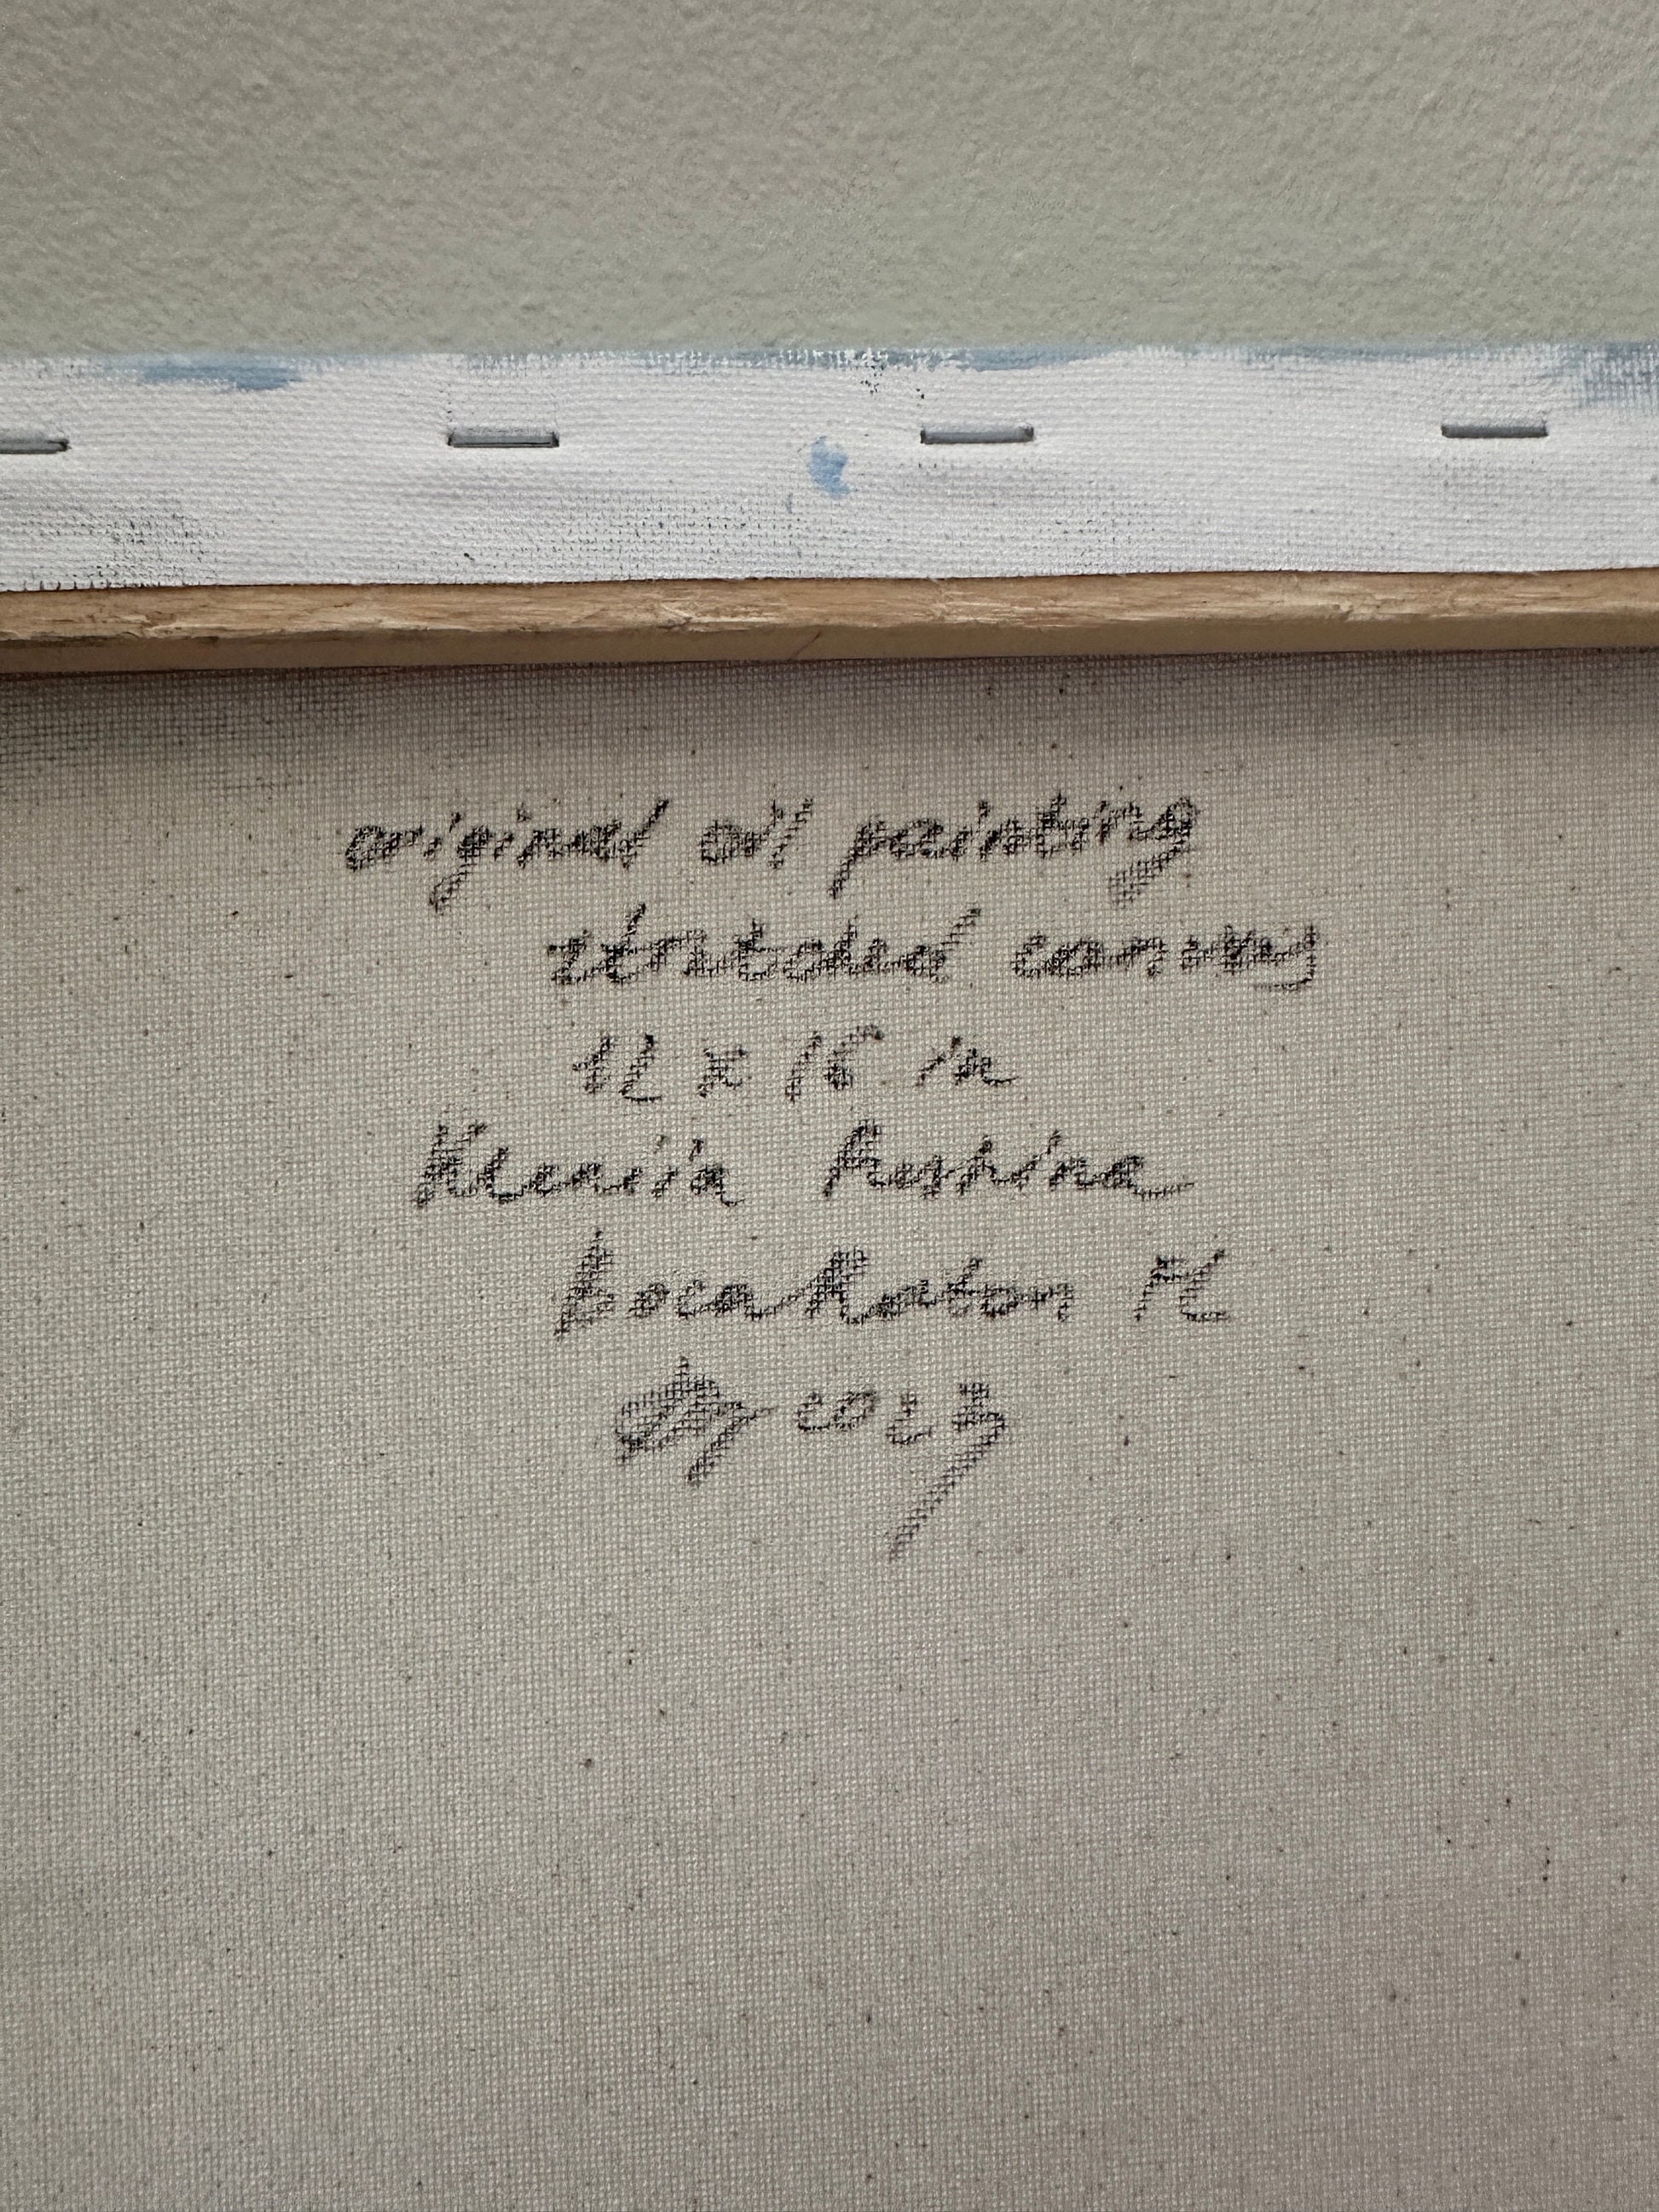 original oil painting
stretched canvas
12 x 16 in
Kseniia
Boca Raton FL
2023